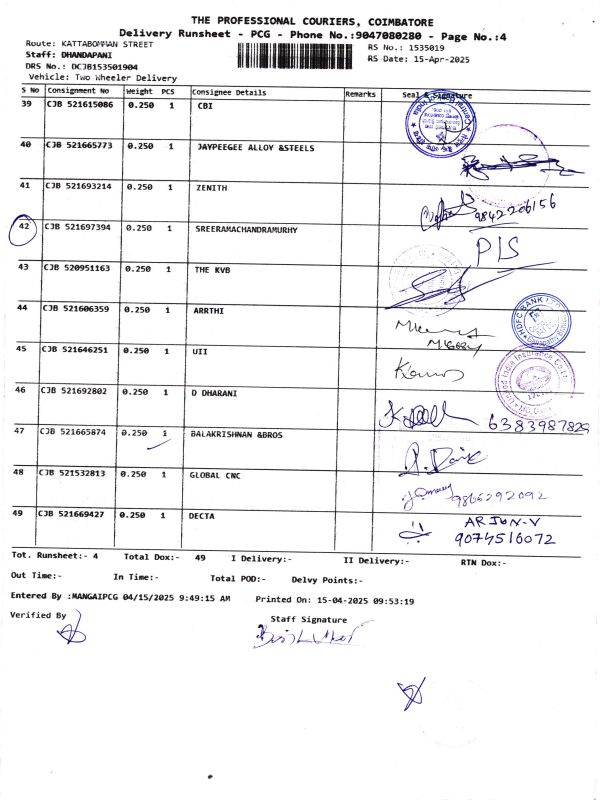 THE PROFESSIONAL COURIERS, COIMBATORE
Delivery Runsheet - PCG - Phone No.:9047080280 - Page No.:4
Route: KATTABOMMAN STREET
RS No.: 1535019
Staff: DHANDAPANI
RS Date: 15-Apr-2025
DRS No.: DCJB153501904
Vehicle: Two Wheeler Delivery
S No Consignment No Weight PCS Consignee Details Remarks Seal & Signature
39 CJB 521615086 0.250 1 CBI
40 CJB 521665773 0.250 1 JAYPEEGEE ALLOY &STEELS
41 CJB 521693214 0.250 1 ZENITH 9842206156
42 CJB 521697394 0.250 1 SREERAMACHANDRAMURHY PIS
43 CJB 520951163 0.250 1 THE KVB
44 CJB 521606359 0.250 1 ARRTHI HDFC BANK LTD
45 CJB 521646251 0.250 1 UII United India Insurance Co Ltd
46 CJB 521692802 0.250 1 D DHARANI 6383987829
47 CJB 521665874 0.250 1 BALAKRISHNAN &BROS
48 CJB 521532813 0.250 1 GLOBAL CNC 9865292092
49 CJB 521669427 0.250 1 DECTA ARJUN-V
9074516072
Tot. Runsheet:- 4 Total Dox:- 49 I Delivery:- II Delivery:- RTN Dox:-
Out Time:- In Time:- Total POD:- Delvy Points:-
Entered By :MANGAIPCG 04/15/2025 9:49:15 AM Printed On: 15-04-2025 09:53:19
Verified By Staff Signature